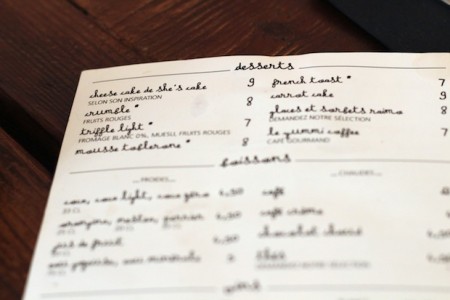 desserts
cheese cake de she's cake 9
SELON SON INSPIRATION
crumble * 8
FRUITS ROUGES
triffle light * 7
FROMAGE BLANC 0%, MUESLI, FRUITS ROUGES
mousse toblerone * 8
french toast * 7
carrot cake 9
glaces et sorbets raimo 8
DEMANDEZ NOTRE SÉLECTION
le yummi coffee 7
CAFÉ GOURMAND
boissons
FROIDES
coca, coca light, coca zéro
orangina, perrier
jus de fruit
CHAUDES
café
café crème
chocolat chaud
thés
DEMANDEZ NOTRE SÉLECTION
vins